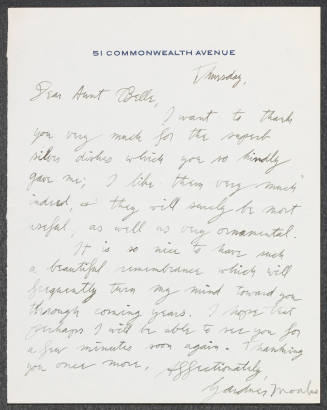 51 COMMONWEALTH AVENUE
Thursday.
Dear Aunt Belle,
I want to thank
you very much for the superb
silver dishes which you so kindly
gave me; I like them very much
indeed, & they will surely be most
useful, as well as very ornamental.
It is so nice to have such
a beautiful remembrance which will
frequently turn my mind toward you
through coming years. I hope that
perhaps I will be able to see you for
a few minutes soon again. Thanking
you once more, Affectionately,